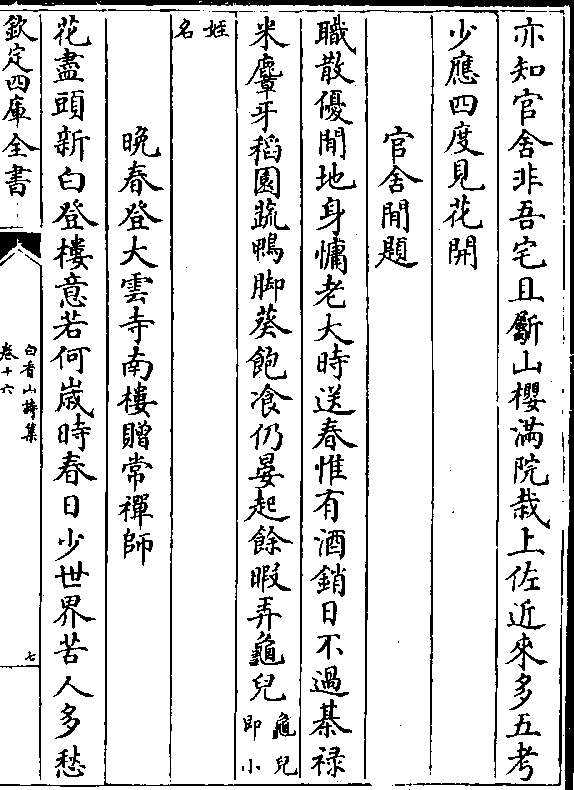 亦知官舍非吾宅且斸山櫻滿院栽上佐近來多五考
少應四度見花開
官舍閒題
職散優閒地身慵老大時送春惟有酒銷日不過棊祿
米麞牙稻園蔬鴨脚葵飽飡仍晏起餘暇弄龜兒龜兒即小
姪名
晚春登大雲寺南樓贈常禪師
花盡頭新白登樓意若何歲時春日少世界苦人多愁
欽定四庫全書
白香山詩集
卷十六
七